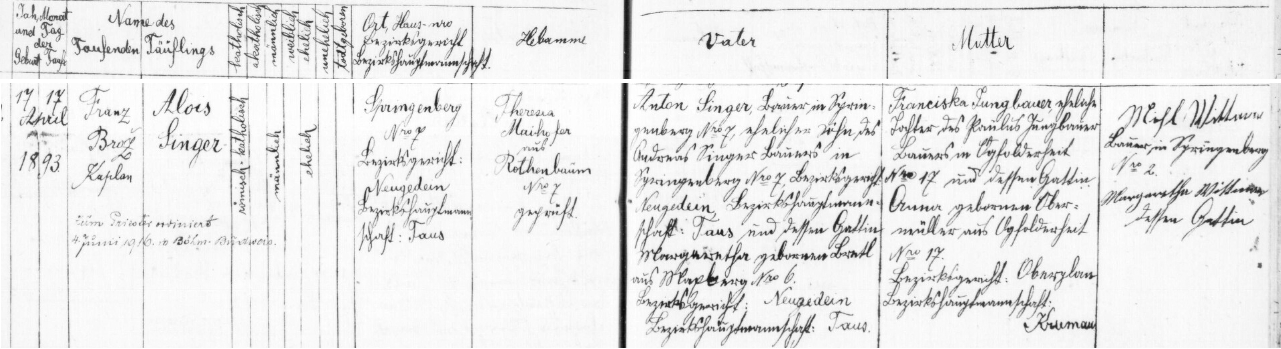 Jahr Monat
und Tag
der
Geburt Taufe
Name des
Taufenden Täuflings
katholisch
akatholisch
männlich
weiblich
ehelich
unehelich
todtgeboren
Ort, Haus-nro
Bezirksgericht
Bezirkshauptmannschaft.
Hebamme
Vater
Mutter
17 17
April
1893.
Franz
Brož
Kaplan
Alois
Singer
römisch-katholisch
männlich
ehelich
Springenberg
Nro 7
Bezirksgericht:
Neugedein
Bezirkshauptmann
schaft: Taus
Theresia
aus
Rothenbaum
Nro 7
geprüft.
Anton Singer, Bauer, in Sprin-
genberg Nro 7, ehelicher Sohn des
Andreas Singer Bauers in
Springenberg Nro 7, Bezirksgericht
Neugedein Bezirkshauptmann-
schaft: Taus und dessen Gattin
Margaretha gebornen Bretl
aus Maxberg Nro 6.
Bezirksgericht: Neugedein
Bezirkshauptmannschaft: Taus.
Franciska Jungbauer eheliche
Tochter des Paulus Jungbauer
Bauers in Ogfolderheit
Nro 17 und dessen Gattin
Anna gebornen Ober-
müller aus Ogfolderheit
Nro 17.
Bezirksgericht: Oberplan
Bezirkshauptmannschaft:
Krumau
Michl Wittman
Bauer, in Springenberg
Nro 2.
Margaretha Wittman
dessen Gattin
zum Priester ordiniert
4. Juni 1916. in Böhm. Budweis.